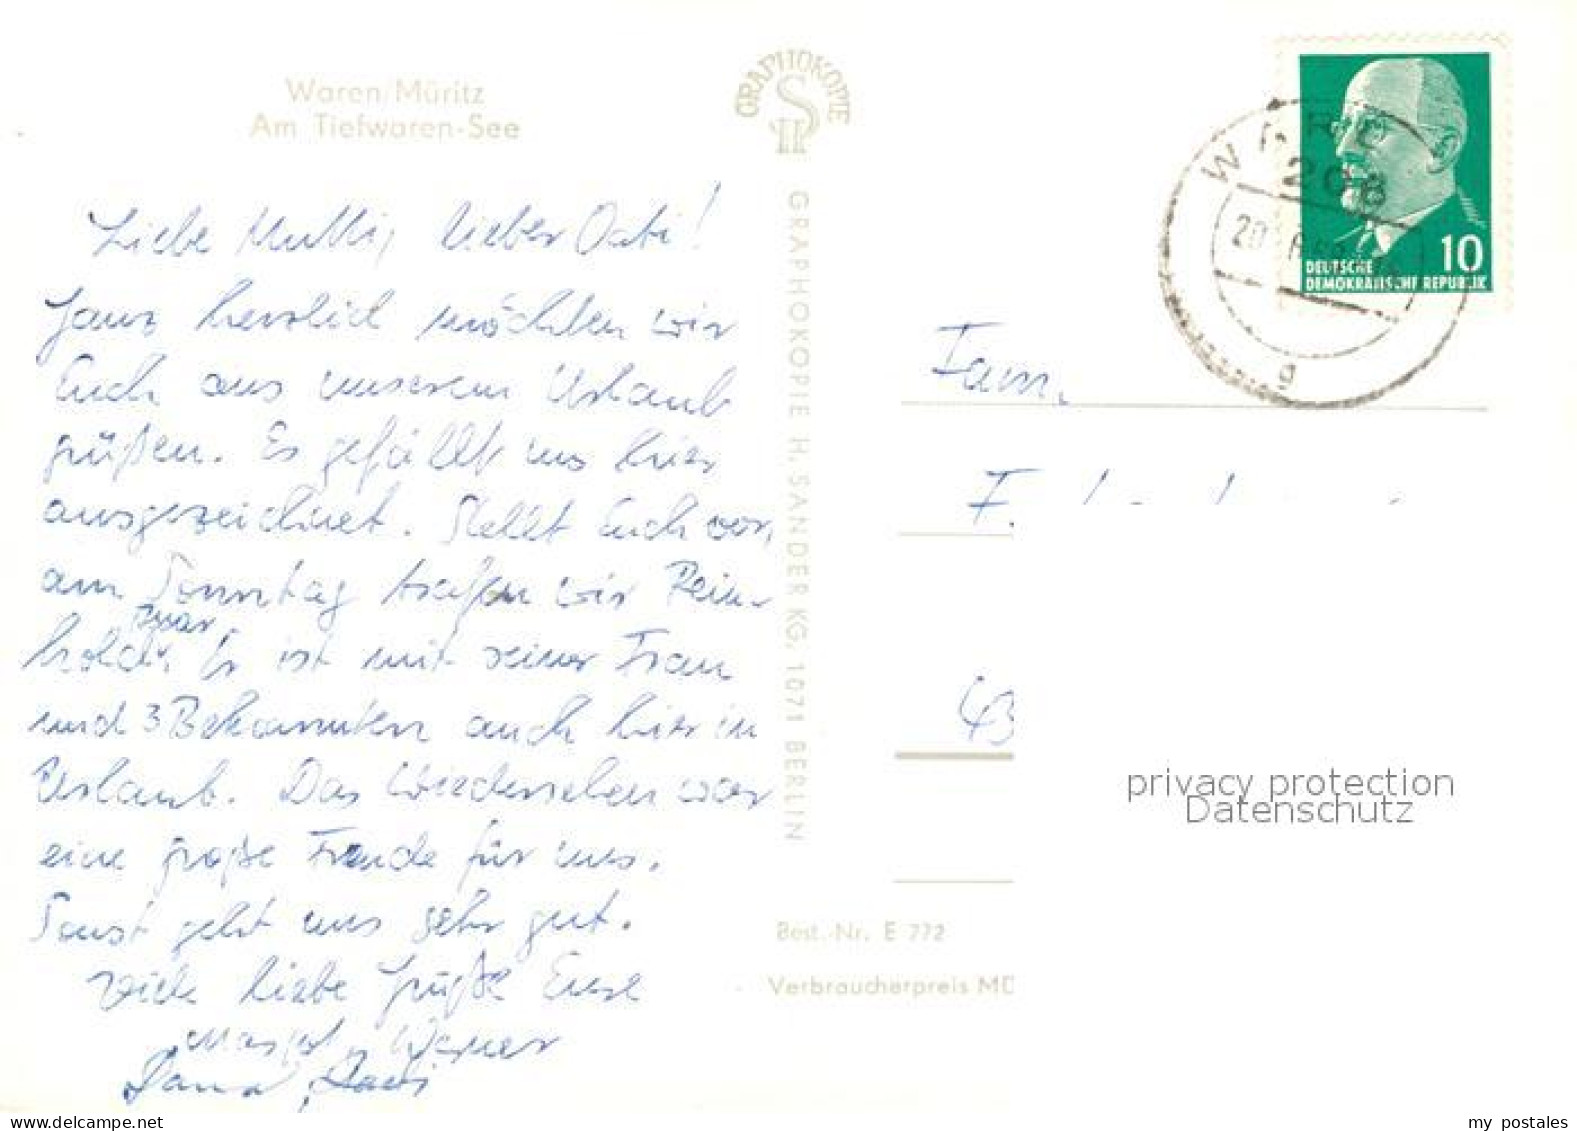 Waren/Müritz
Am Tiefwaren-See
GRAPHOKOPIE
H S
GRAPHOKOPIE H. SANDER KG, 1071 BERLIN
Liebe Mutti, lieber Vati!
Ganz herzlich möchten wir
Euch aus unserem Urlaub
grüßen. Es gefällt uns hier
ausgezeichnet. Stellt Euch vor,
am Sonntag trafen wir Rein-
hold. Er ist mit seiner Frau
und 3 Bekannten auch hier in
Urlaub. Das Wiedersehen war
eine große Freude für uns.
Sonst geht uns sehr gut.
Viele liebe Grüße Eure
Margot, Werner
Best.-Nr. E 772
Verbraucherpreis MD
WAREN
208
20
g
10
DEUTSCHE
DEMOKRATISCHE REPUBLIK
Fam.
43
privacy protection
Datenschutz
my postales